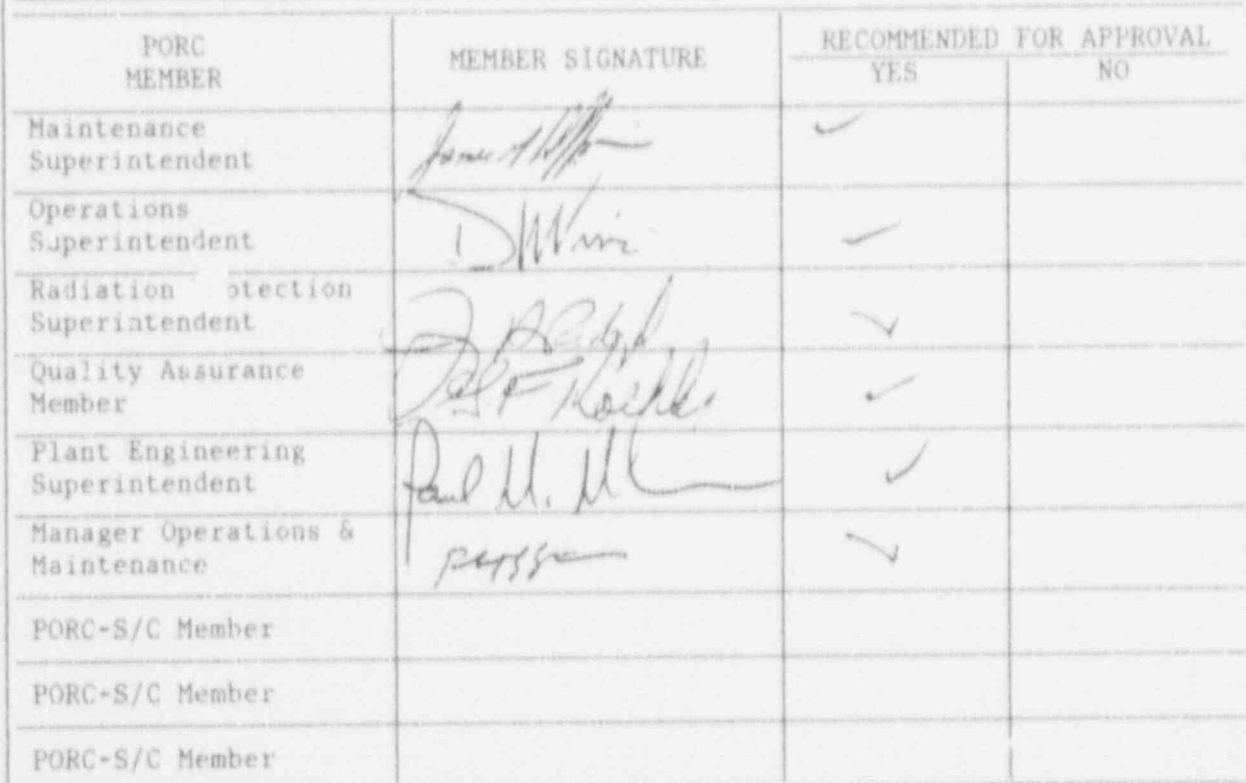 PORC
MEMBER
MEMBER SIGNATURE
RECOMMENDED FOR APPROVAL
YES
NO
Maintenance
Superintendent
James A
✓
Operations
Superintendent
✓
Radiation otection
Superintendent
✓
Quality Assurance
Member
F
✓
Plant Engineering
Superintendent
Paul M.
✓
Manager Operations &
Maintenance
✓
PORC-S/C Member
PORC-S/C Member
PORC-S/C Member